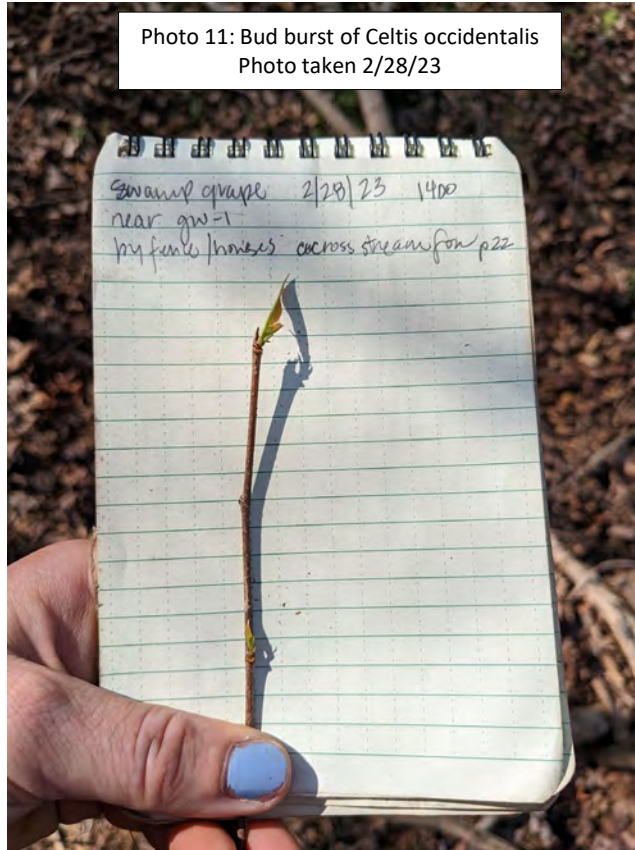 Photo 11: Bud burst of Celtis occidentalis
Photo taken 2/28/23
Swamp grape 2/28/23 1400
near gw-1
by fence/houses across stream from p22